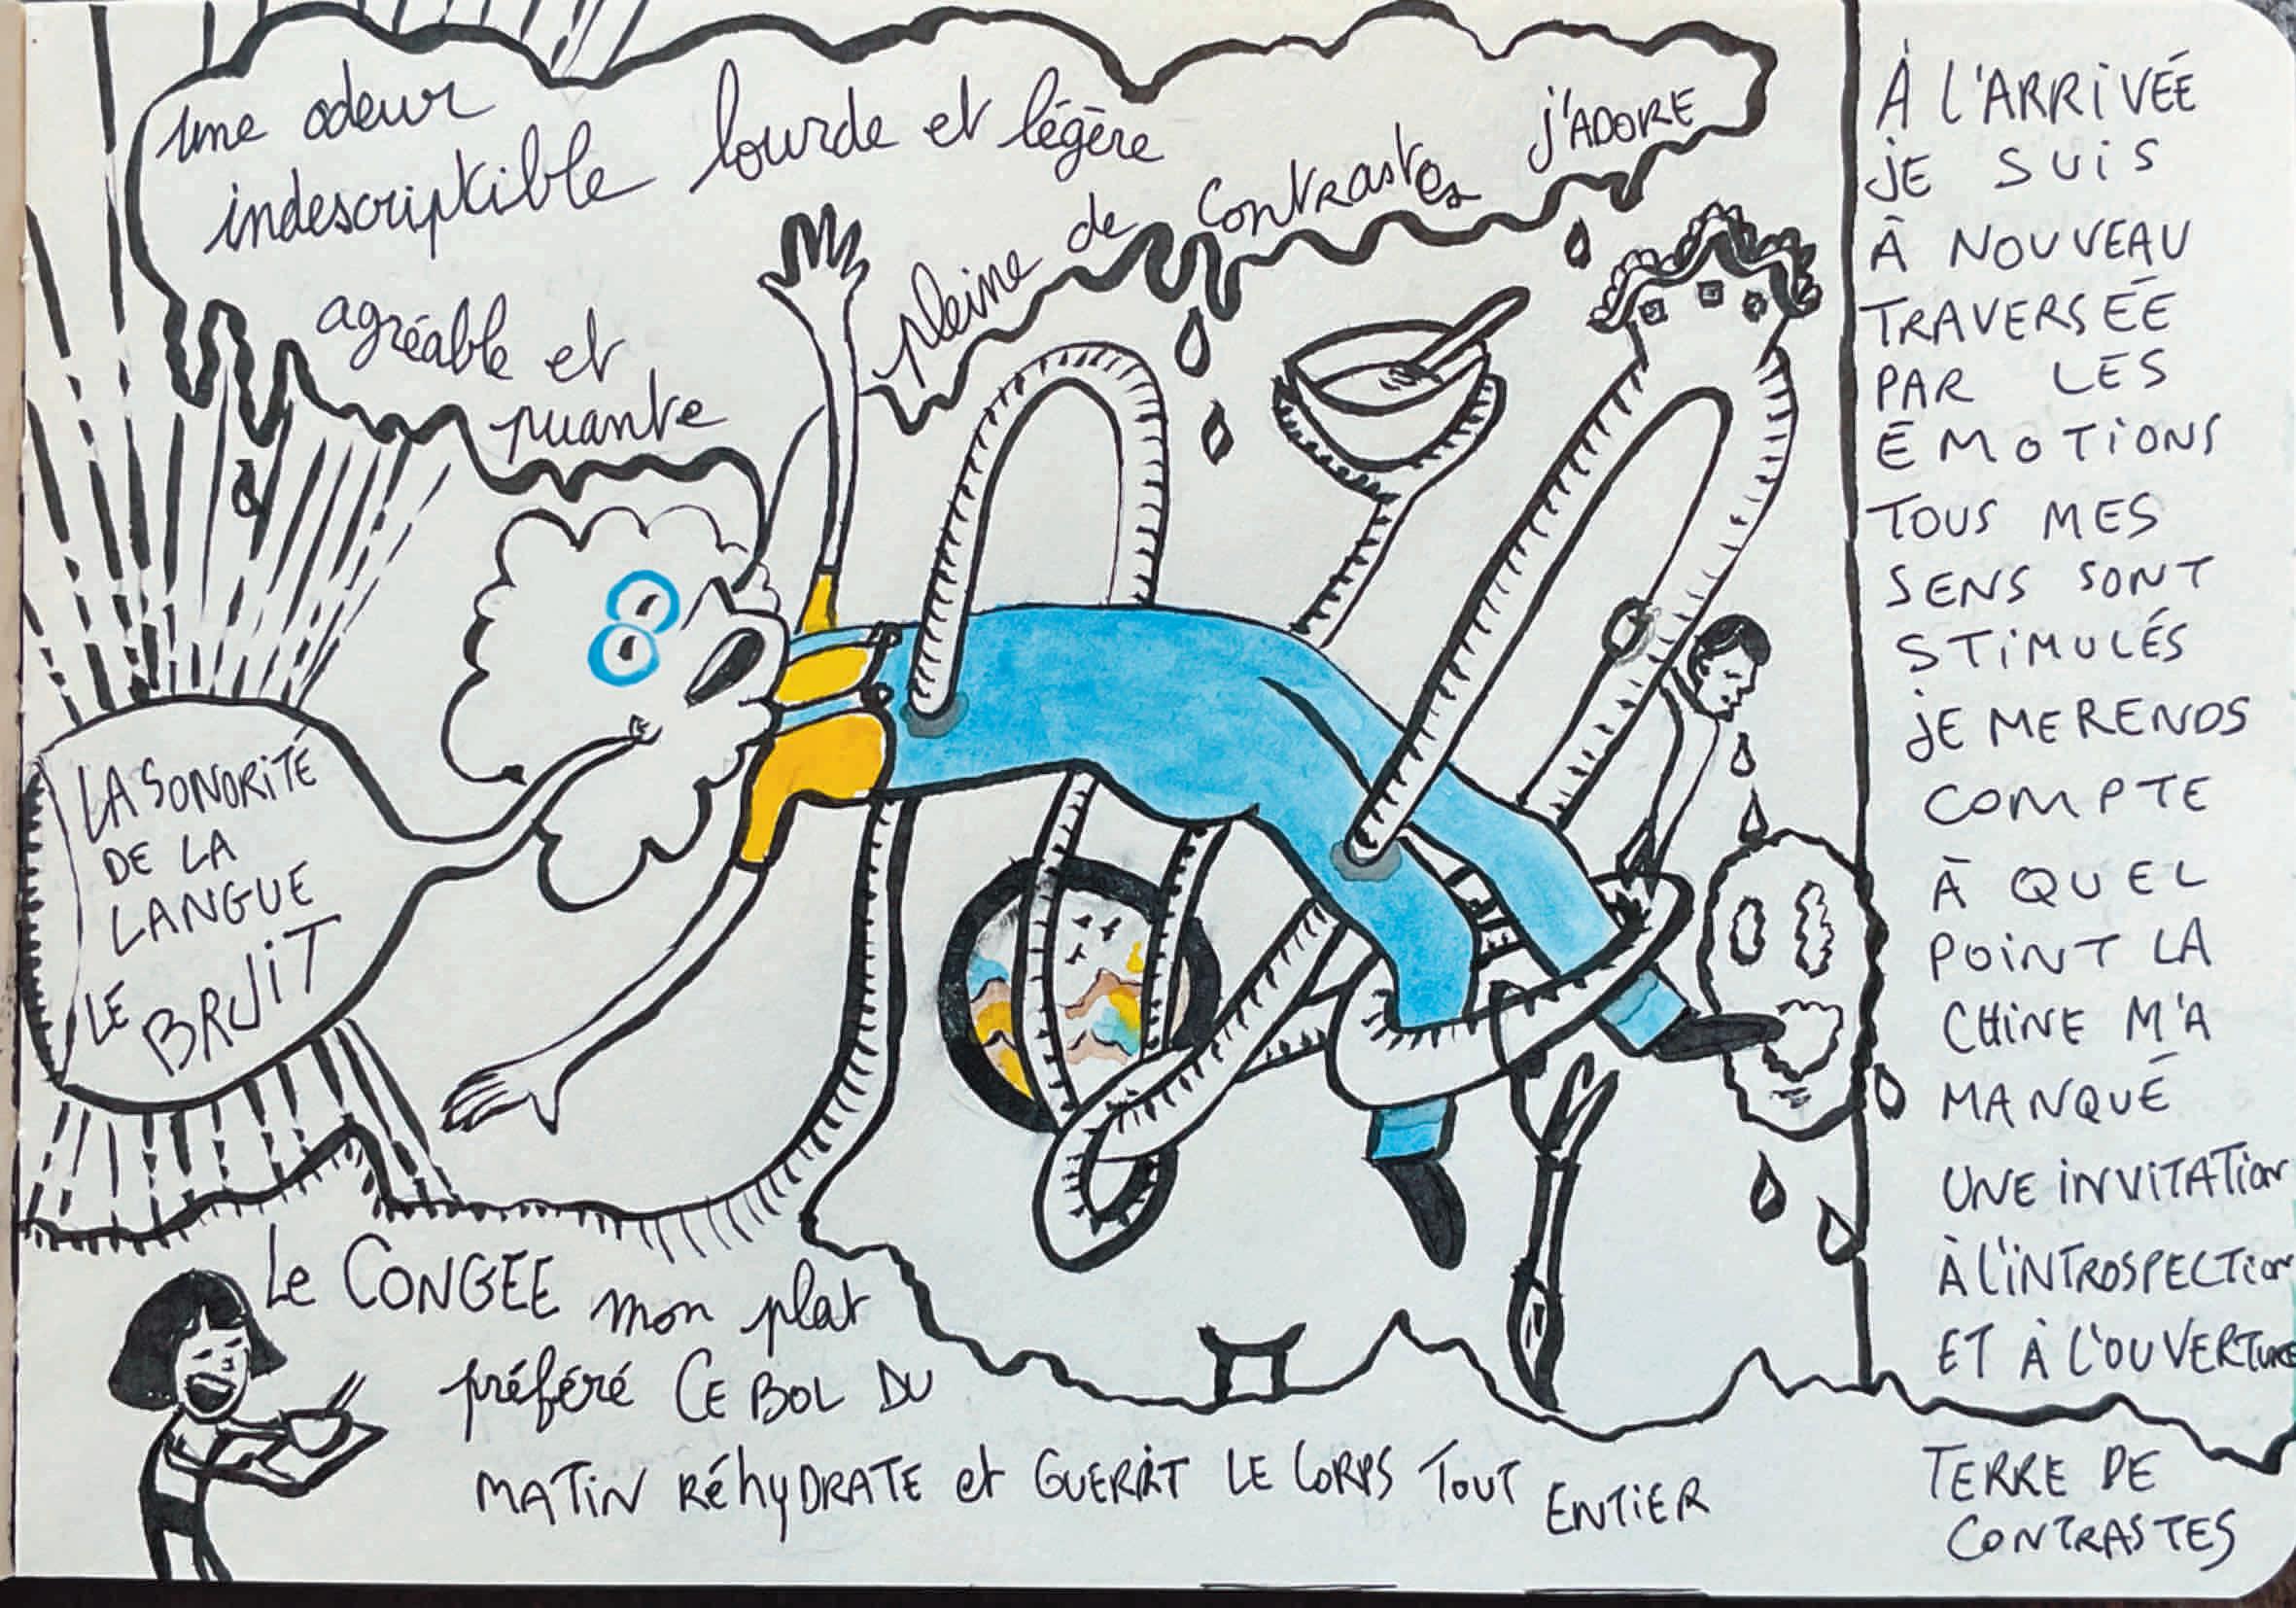 une odeur
indescriptible lourde et légère
agréable et
puante
pleine de contrastes j'ADORE
LA SONORITÉ
DE LA
LANGUE
LE
BRUIT
Le CONGEE mon plat
préféré CE BOL DU
MATIN RéhyDRATE et GUERRIT LE CORPS TOUT ENTIER
À L'ARRIVÉE
JE SUIS
À NOUVEAU
TRAVERSÉE
PAR LES
ÉMOTIONS
TOUS MES
SENS SONT
STIMULÉS
JE ME RENDS
COMPTE
À QUEL
POINT LA
CHINE M'A
MANQUÉ
UNE INVITATION
À L'INTROSPECTION
ET À L'OUVERTURE
TERRE DE
CONTRASTES